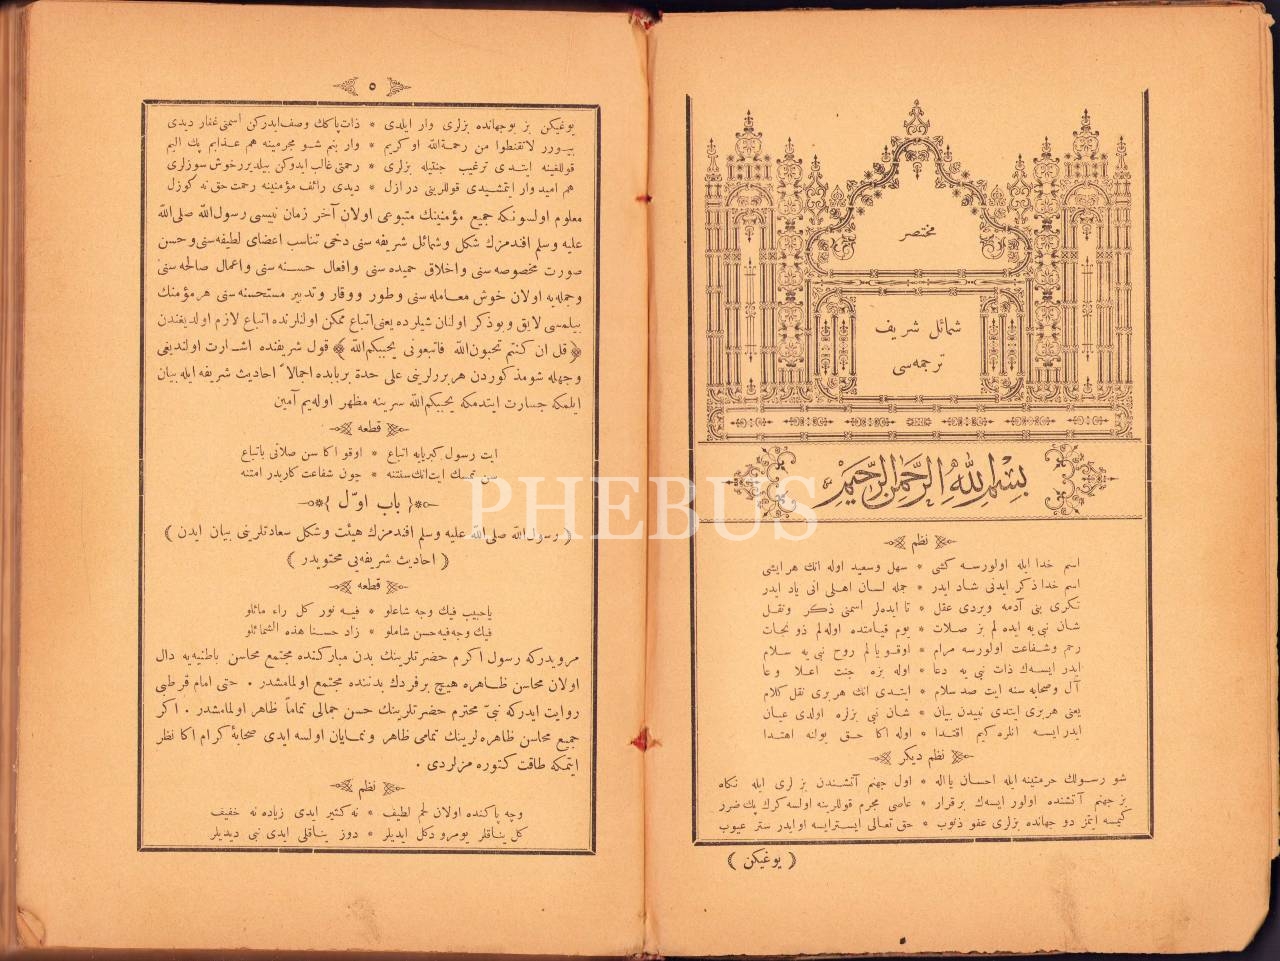 مختصر
شمائل شریف
ترجمه‌سی
بسم الله الرحمن الرحیم
نظم
اسم خدا ایله اولورسه كشی * سهل وسعید اوله انك هر ایشی
اسم خدا ذكر ایدنی شاد ایدر * جمله لسان اهلی انی یاد ایدر
تكری بنی آدمه ویردی عقل * تا ایده‌لر اسمنی ذكر ونقل
شان نبی یه ایده لم بز صلات * یوم قیامتده اوله‌لم ذو نجات
رحم وشفاعت اولورسه مرام * اوقویالم روح نبی یه سلام
ایدر ایسه‌ك ذات نبی یه دعا * اوله بزه جنت اعلا وعا
آل وصحابه سنه ایت صد سلام * ابتدی انك هربری نقل كلام
یعنی هربری ایتدی نبیدن بیان * شان نبی بزلره اولدی عیان
ایدر ایسه انلره كیم اقتدا * اوله اكا حق یولنه اهتدا
نظم دیكر
شو رسولك حرمتینه ایله احسان یااله * اول جهنم آتشندن بزلری ایله نكاه
بز جهنم آتشنده اولور ایسه‌ك برقرار * عاصی مجرم قوللرینه اولسه كرك پك ضرر
كیمسه ایتمز دو جهانده بزلری عفو ذنوب * حق تعالی ایسترایسه اوایدر ستر عیوب
﴿ یوغیكن ﴾
٥
یوغیكن بز بوجهانده بزلری وار ایلدی * ذات پاكك وصف ایدركن اسمنی غفار دیدی
بیورر لاتقنطوا من رحمةالله اوكریم * وار بنم شو مجرمینه هم عذابم پك الیم
قوللغینه ایتدی ترغیب جنتیله بزلری * رحمتی غالب ایدوكن بیلدیررخوش سوزلری
هم امیدوار ایتمشیدی قوللرینی در ازل * دیدی رائف مؤمنینه رحمت حق نه كوزل
معلوم اولسونكه جمیع مؤمنینك متبوعی اولان آخر زمان نبیسی رسول‌الله صلی‌الله
علیه وسلم افندمزك شكل وشمائل شریفه سنی دخی تناسب اعضای لطیفه‌سنی وحسن
صورت مخصوصه سنی واخلاق حمیده سنی وافعال حسنه سنی واعمال صالحه سنی
وجمله‌یه اولان خوش معامله سنی وطور ووقار وتدبیر مستحسنه سنی هرمؤمنك
بیلمسی لایق وبوذكر اولنان شیلرده یعنی اتباع ممكن اولنلرنده اتباع لازم اولدیغندن
﴿ قل ان كنتم تحبون‌الله فاتبعونی یحببكم‌الله ﴾ قول شریفنده اشارت اولندیغی
وجهله شومذكوردن هربررلرینی علی حدة بربابده اجمالاً احادیث شریفه ایله بیان
ایلمكه جسارت ایتدمكه یحببكم‌الله سرینه مظهر اوله‌یم آمین
قطعه
ایت رسول كبریایه اتباع * اوقو اكا سن صلاتی باتباع
سن تمسك ایت‌انك سنتنه * چون شفاعت كاریدر امتنه
﴿ باب اوّل ﴾
﴿ رسول‌الله صلی‌الله علیه وسلم افندمزك هیئت وشكل سعادتلرینی بیان ایدن ﴾
﴿ احادیث شریفه‌یی محتویدر ﴾
قطعه
یاحبیب فیك وجه شاعلو * فیه نور كل راء مائلو
فیك وجه فیه حسن شاملو * زاد حسنا هذه الشمائلو
مرویدركه رسول اكرم حضرتلرینك بدن مباركنده مجتمع محاسن باطنیه‌یه دال
اولان محاسن ظاهره هیچ برفردك بدننده مجتمع اولمامشدر . حتی امام قرطبی
روایت ایدركه نبیّ محترم حضرتلرینك حسن جمالی تماماً ظاهر اولمامشدر . اكر
جمیع محاسن ظاهره لرینك تمامی ظاهر ونمایان اولسه ایدی صحابهٔ كرام اكا نظر
ایتمكه طاقت كتوره مزلردی .
نظم
وجه پاكنده اولان لحم لطیف * نه كثیر ایدی زیاده نه خفیف
كل یناقلر یومرو دكل ایدیلر * دوز یناقلی ایدی نبی دیدیلر
PHEBUS